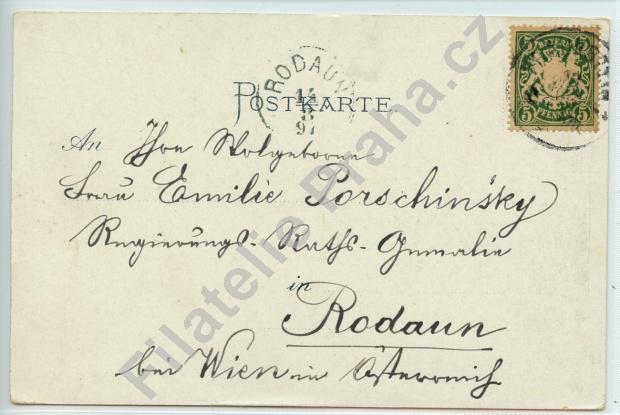 BAYERN
5 5
PFENNIG
5 5
RODAUN
97
POSTKARTE
An Ihre Wolgeborene
Frau Emilie Porschinsky
Regierungs-Raths-Gemalin
in
Rodaun
bei Wien in Österreich
Filatelie Praha.cz